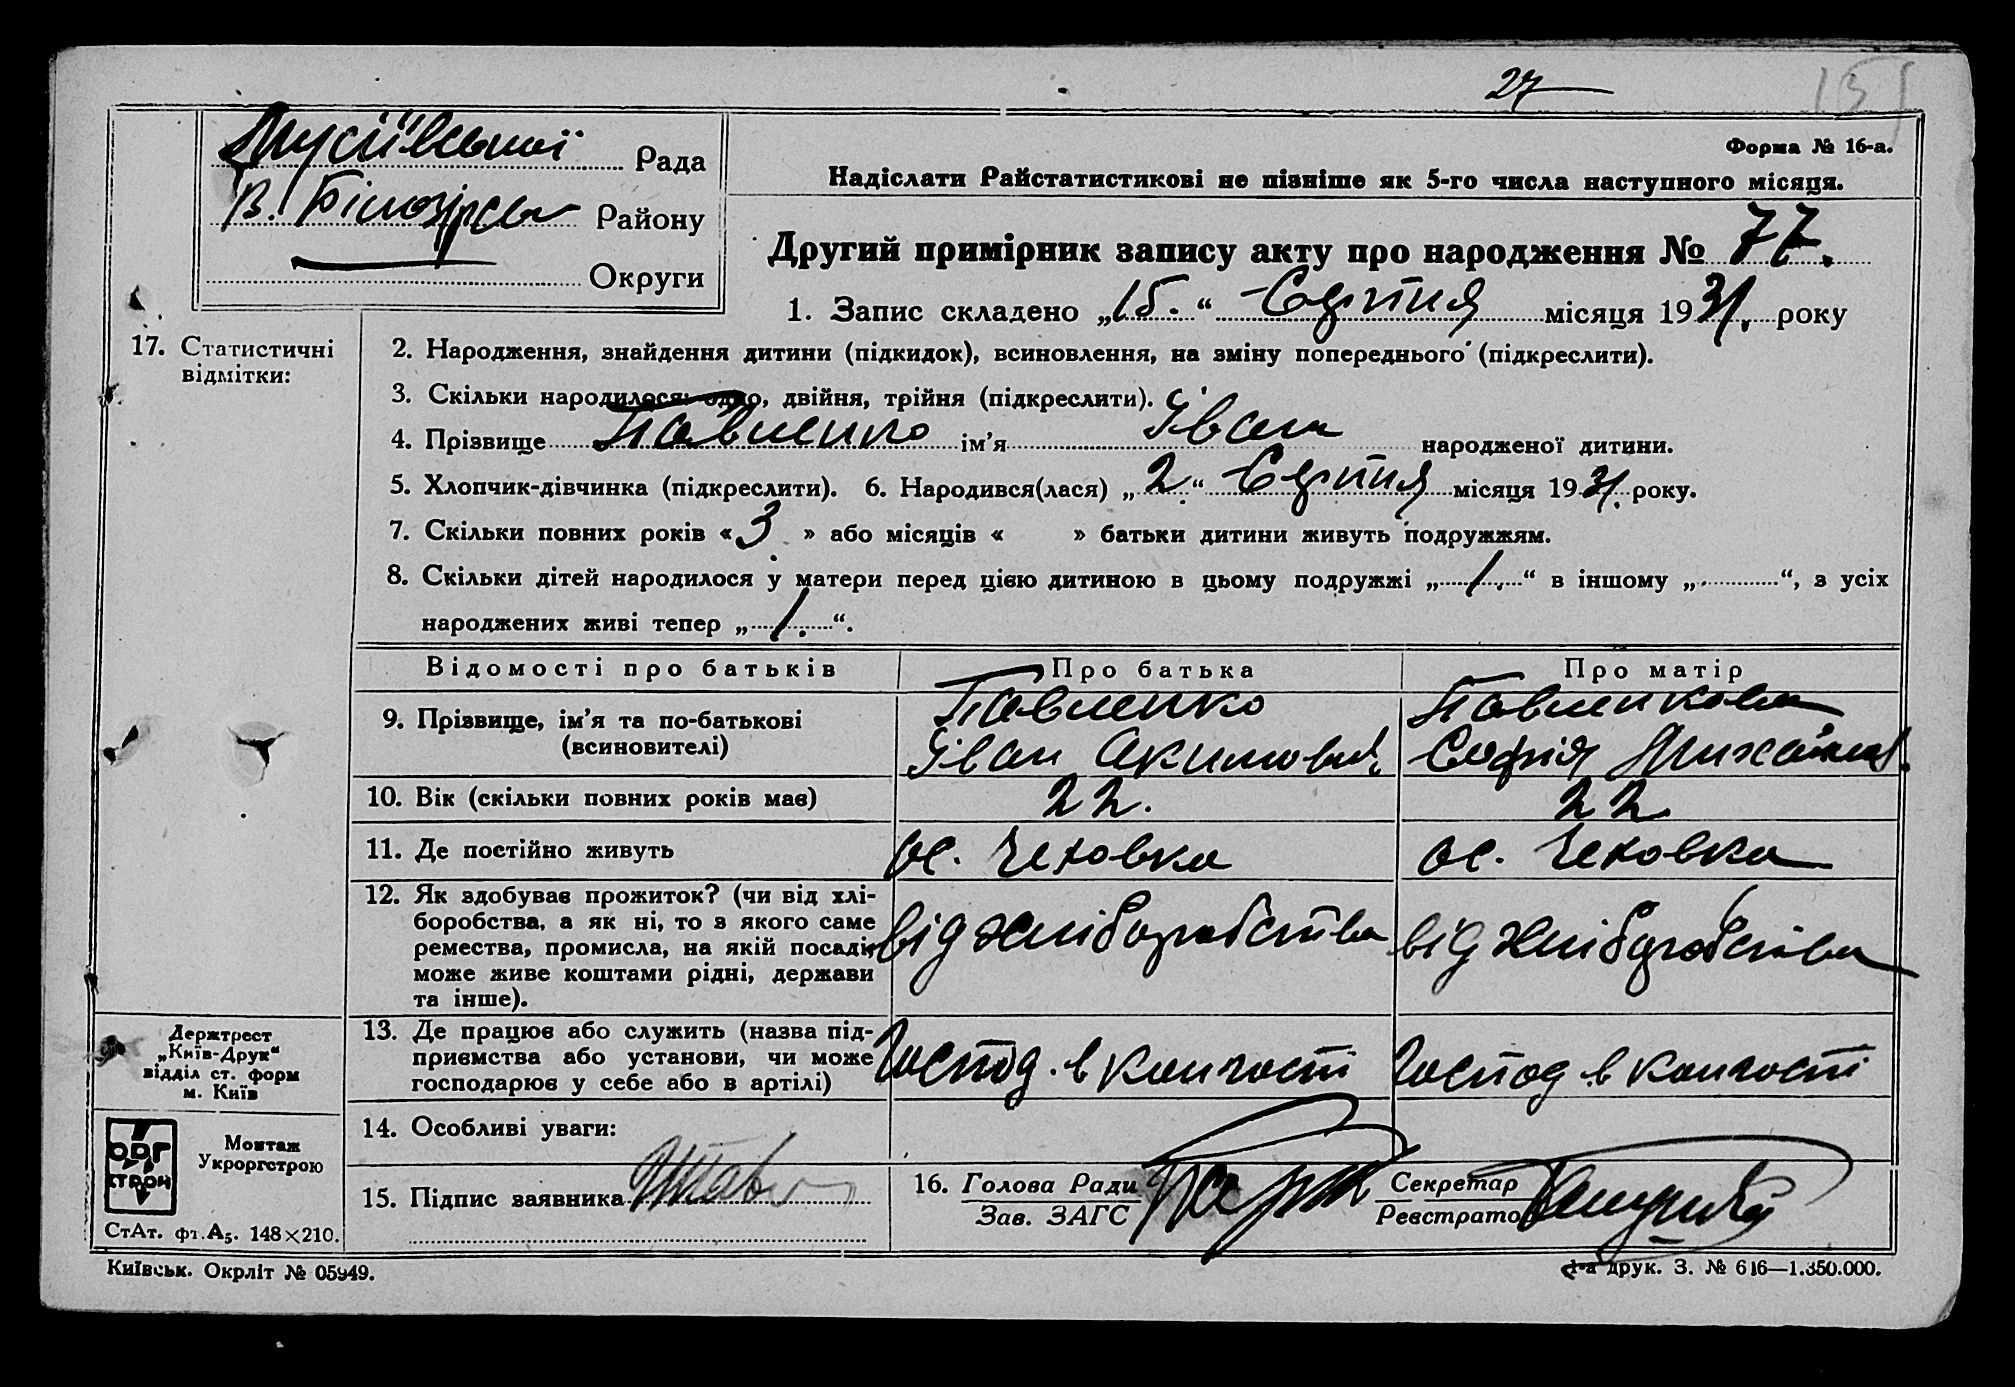 27
151
Мусіївської Рада
В. Білозірськ Району
Округи
Форма № 16-а.
Надіслати Райстатистикові не пізніше як 5-го числа наступного місяця.
Другий примірник запису акту про народження № 77.
1. Запис складено „15.“ Серпня місяця 1931. року
17. Статистичні
відмітки:
2. Народження, знайдення дитини (підкидок), всиновлення, на зміну попереднього (підкреслити).
3. Скільки народилося: одно, двійня, трійня (підкреслити).
4. Прізвище Павленко ім’я Іван народженої дитини.
5. Хлопчик-дівчинка (підкреслити). 6. Народився(лася) „2“ Серпня місяця 1931. року.
7. Скільки повних років «3» або місяців « » батьки дитини живуть подружжям.
8. Скільки дітей народилося у матери перед цією дитиною в цьому подружжі „1.“ в іншому „ “, з усіх
народжених живі тепер „1.“.
Відомості про батьків Про батька Про матір
9. Прізвище, ім’я та по-батькові
(всиновителі)
Павленко
Іван Акимович
Павленкова
Софія Михайлов.
10. Вік (скільки повних років має) 22. 22
11. Де постійно живуть ос. Чеховка ос. Чеховка
12. Як здобуває прожиток? (чи від хлі-
боробства, а як ні, то з якого саме
ремества, промисла, на якій посаді,
може живе коштами рідні, держави
та інше).
від хліборобства від хліборобства
13. Де працює або служить (назва під-
приємства або установи, чи може
господарює у себе або в артілі)
Господ. в колгоспі Господ в колгоспі
14. Особливі уваги:
15. Підпис заявника
16. Голова Ради
Зав. ЗАГС
Секретар
Реєстратор
Держтрест
„Київ-Друк“
відділ ст. форм
м. Київ
ОРГ
СТРОЙ
Монтаж
Укроргстрою
СтАт. фт. А₅. 148×210.
Київськ. Окрліт № 05949.
1-а друк. З. № 616—1.350.000.